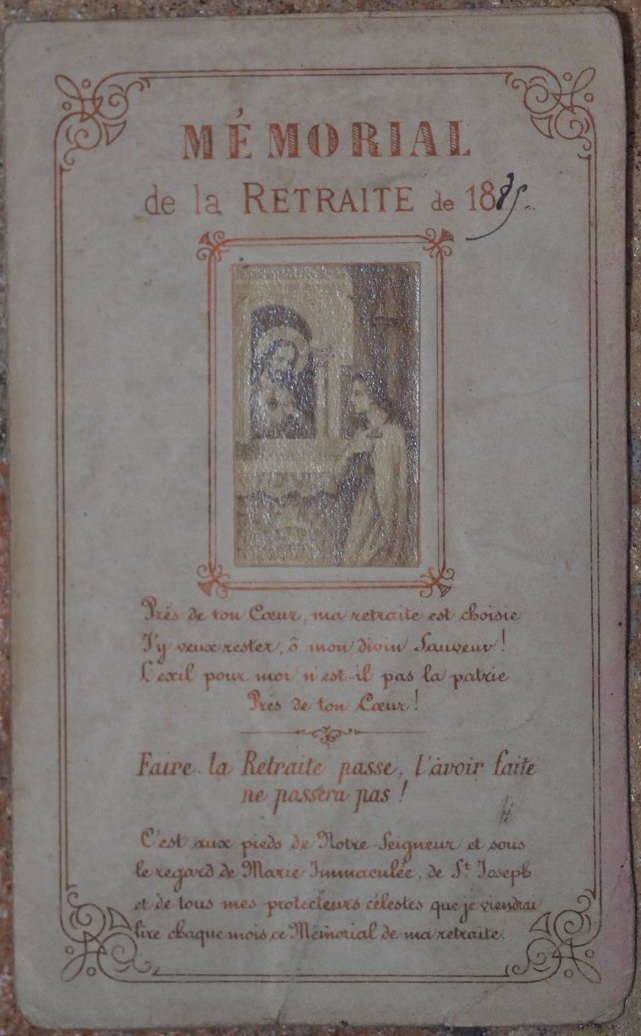 MÉMORIAL
de la RETRAITE de 18
Près de ton Cœur, ma retraite est choisie
J'y veux rester, ô mon divin Sauveur!
L'exil pour moi n'est-il pas la patrie
Près de ton Cœur!
Faire la Retraite passe, l'avoir faite
ne passera pas!
C'est aux pieds de Notre-Seigneur et sous
le regard de Marie Immaculée, de St Joseph
et de tous mes protecteurs célestes que je viendrai
lire chaque mois ce Mémorial de ma retraite.